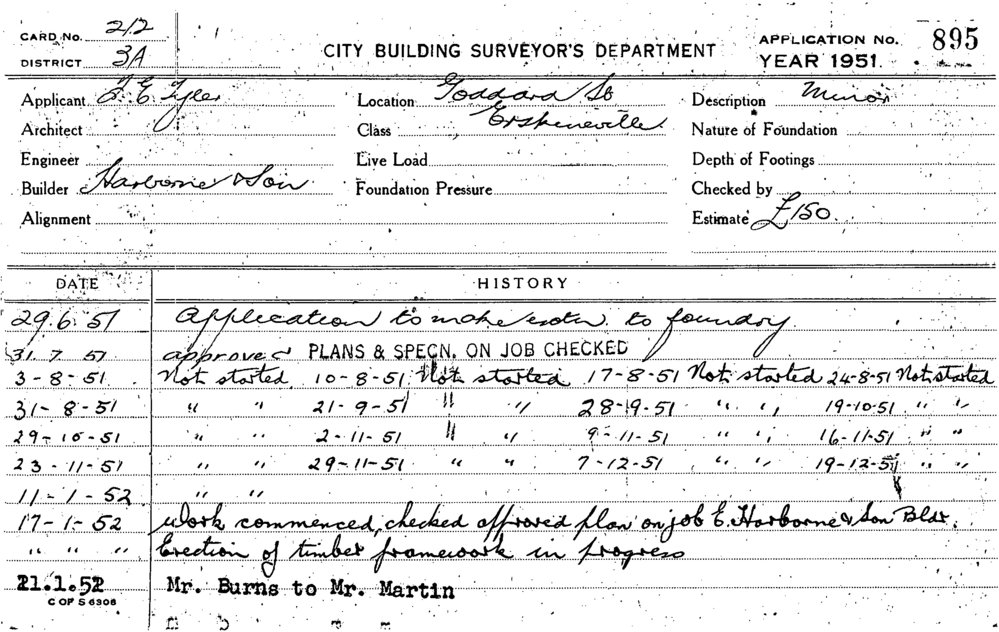 CARD No. 212
DISTRICT 3A
CITY BUILDING SURVEYOR'S DEPARTMENT
APPLICATION No. 895
YEAR 1951
Applicant F. E. Tyler Location Goddard St Description Minor
Architect Class Erskineville Nature of Foundation
Engineer Live Load Depth of Footings
Builder Harborne & Son Foundation Pressure Checked by
Alignment Estimate £150
DATE HISTORY
29.6.51 Application to make extn. to foundry
31.7.51 approved PLANS & SPECN. ON JOB CHECKED
3-8-51 Not started 10-8-51 Not started 17-8-51 Not started 24-8-51 Not started
31-8-51 " " 21-9-51 " " 28-9-51 " " 19-10-51 " "
29-10-51 " " 2-11-51 " " 9-11-51 " " 16-11-51 " "
23-11-51 " " 29-11-51 " " 7-12-51 " " 19-12-51 " "
11-1-52 " "
17-1-52 Work commenced, checked approved plan on job E. Harborne & Son Bldr.
" " " Erection of timber framework in progress
21.1.52 Mr. Burns to Mr. Martin
C OF S 6306